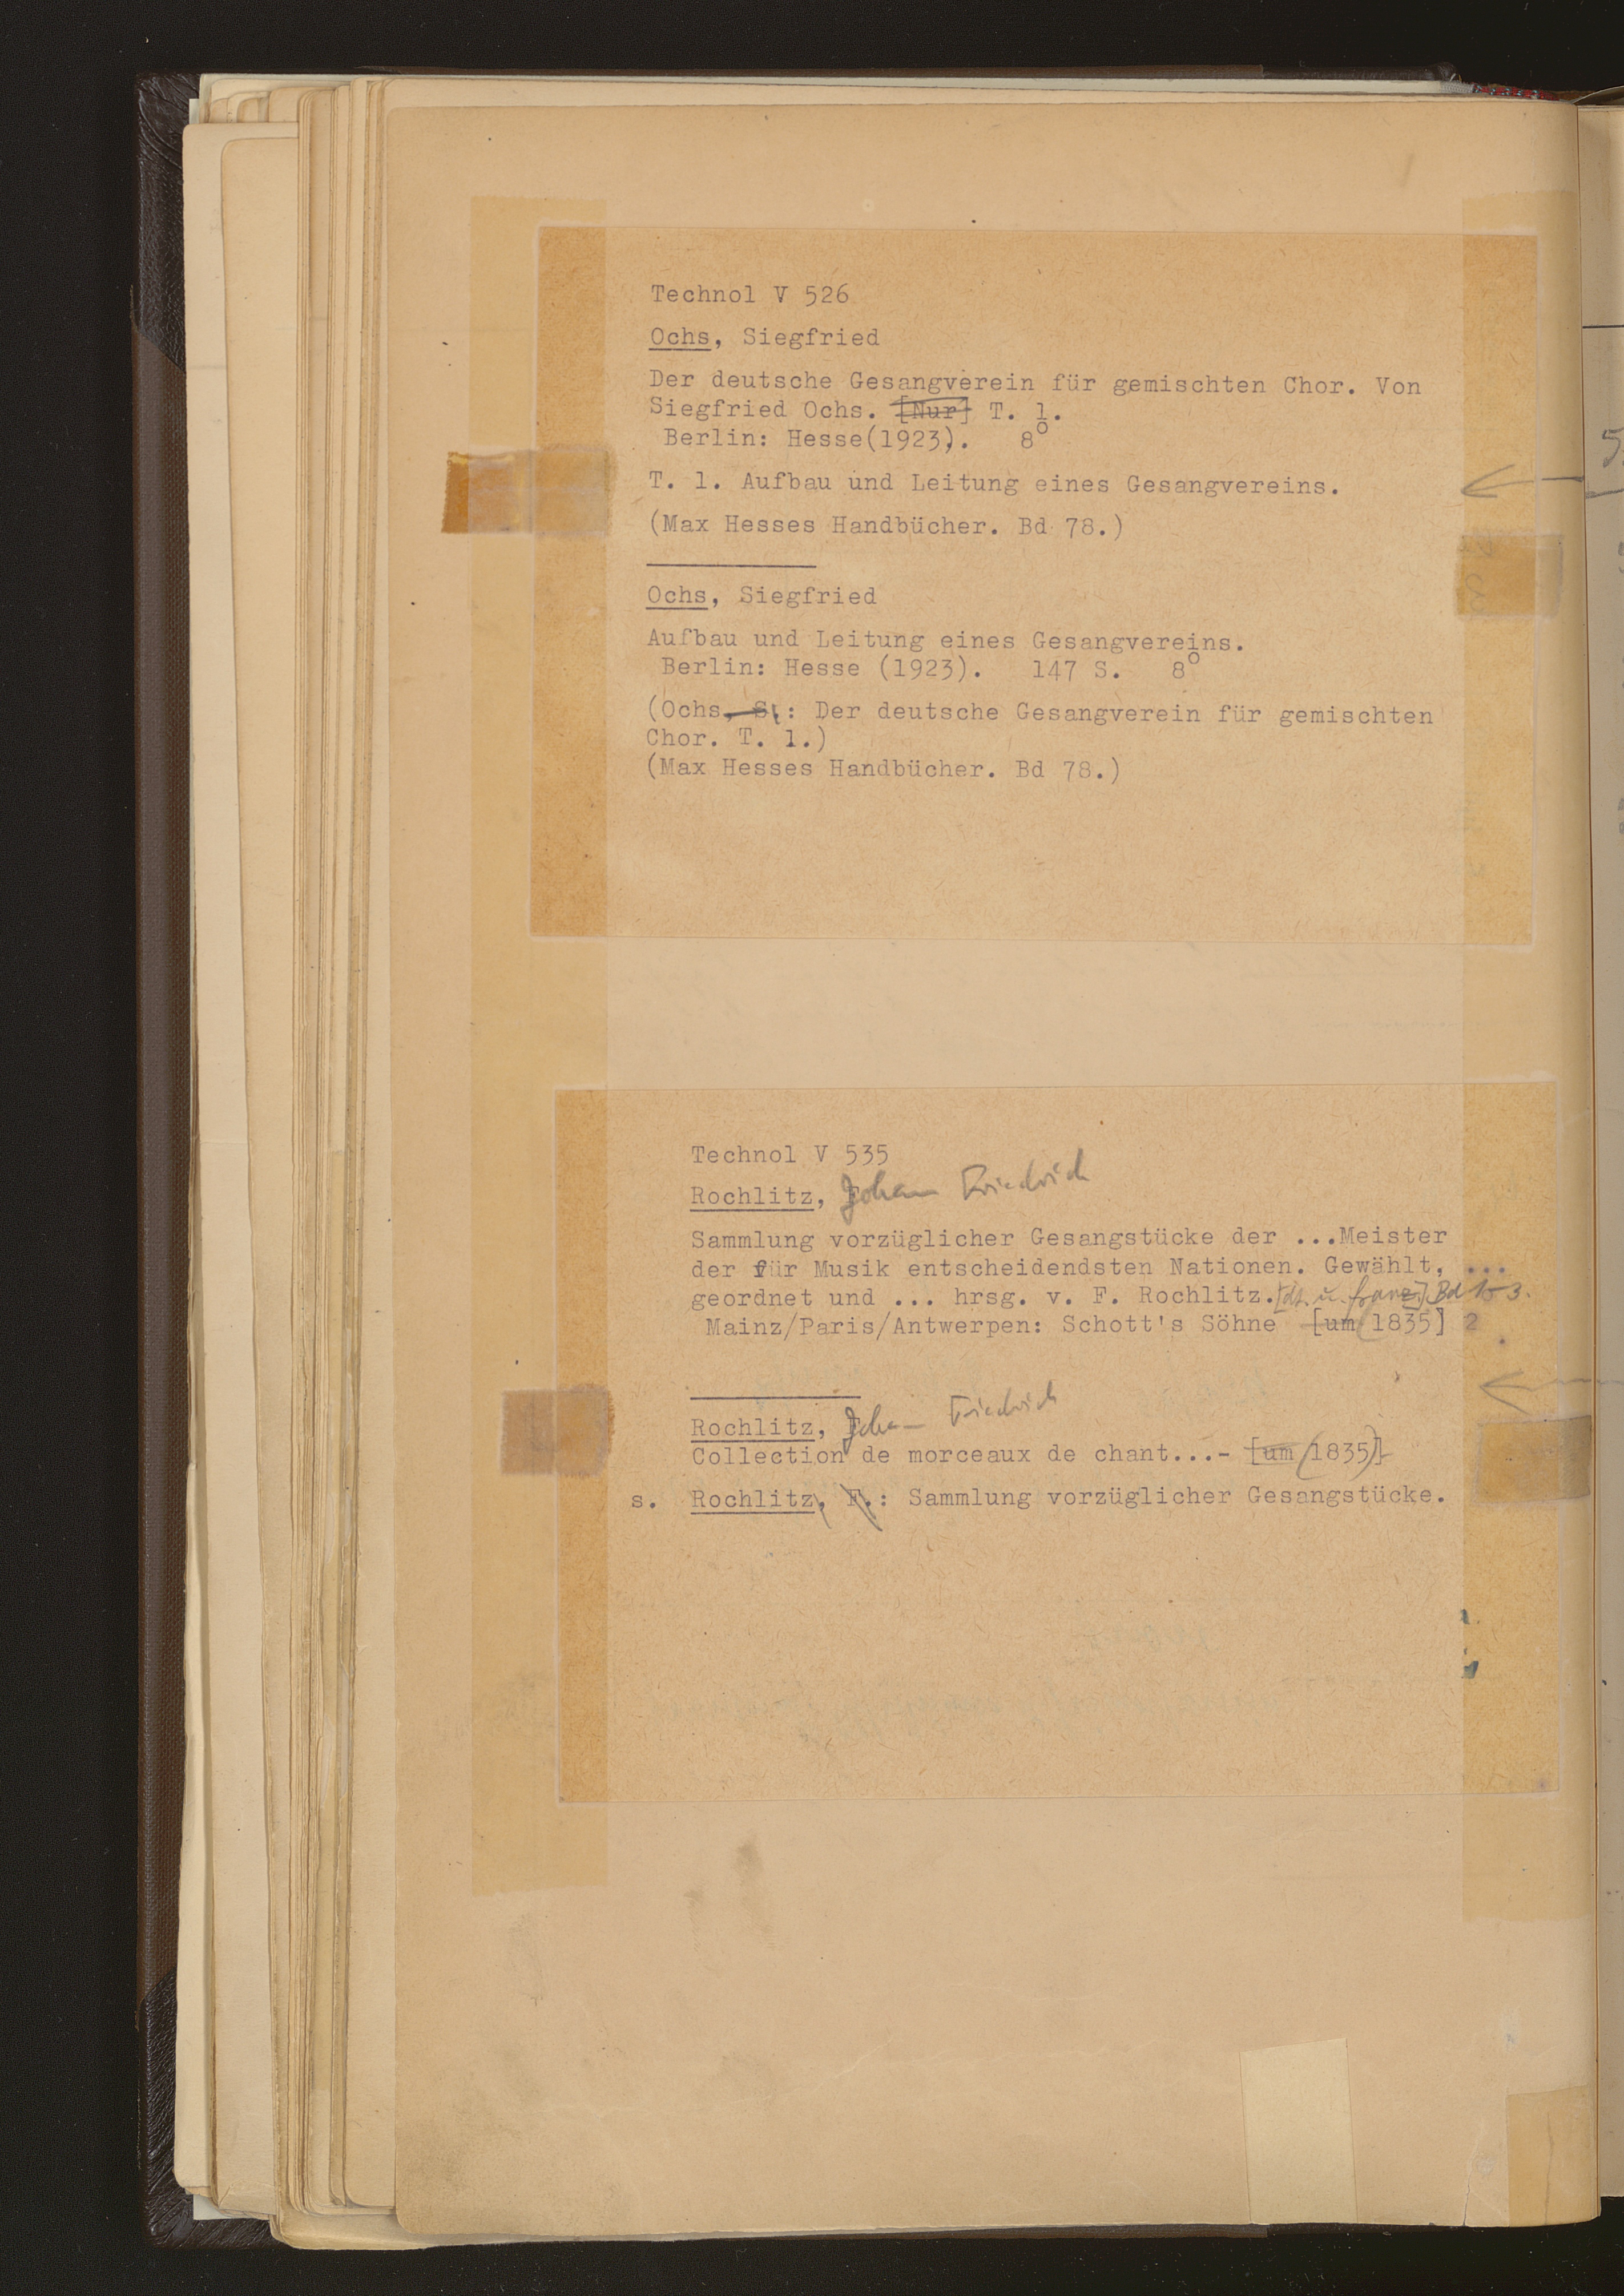 Technol V 526
Ochs, Siegfried
Der deutsche Gesangverein für gemischten Chor. Von
Siegfried Ochs. [Nur] T. 1.
Berlin: Hesse(1923). 8°
T. 1. Aufbau und Leitung eines Gesangvereins.
(Max Hesses Handbücher. Bd 78.)
Ochs, Siegfried
Aufbau und Leitung eines Gesangvereins.
Berlin: Hesse (1923). 147 S. 8°
(Ochs, S.: Der deutsche Gesangverein für gemischten
Chor. T. 1.)
(Max Hesses Handbücher. Bd 78.)
Technol V 535
Rochlitz, Johann Friedrich
Sammlung vorzüglicher Gesangstücke der ...Meister
der für Musik entscheidendsten Nationen. Gewählt, ...
geordnet und ... hrsg. v. F. Rochlitz. [dt. u. franz.] Bd 1-3.
Mainz/Paris/Antwerpen: Schott's Söhne [um (1835] 2
Rochlitz, Johann Friedrich
Collection de morceaux de chant...- [um (1835)]
s. Rochlitz, F.: Sammlung vorzüglicher Gesangstücke.